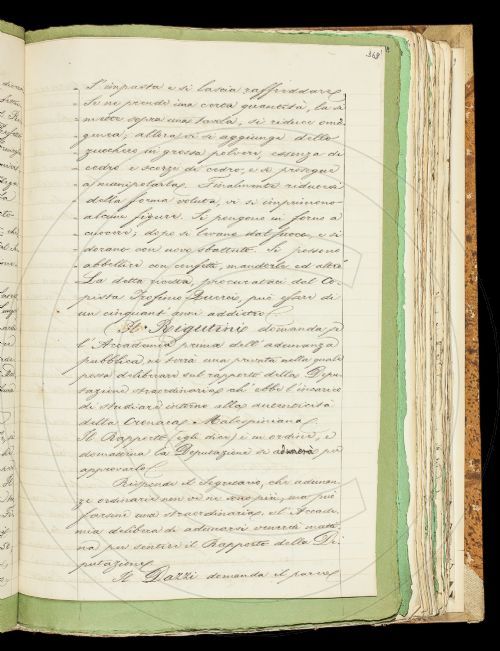 368
S'impasta e si lascia raffreddare.
Se ne prende una certa quantità, la si
mette sopra una tavola, si riduce omo
genea; allora vi si aggiunge dello
zucchero in grossa polvere, essenza di
cedro e scorze di cedro; e si prosegue
a manipolarla. Finalmente ridurrai
della forma voluta, vi si imprimono
alcune figure. Si pongono in forno a
cuocere; dopo si levano dal fuoco, e si
dorano con uovo sbattuto. Si possono
abbellire con confetti, mandorle ed altro
La detta ricetta, procuratai dal Co-
pista può essere di
un cinquant' anni addietro
Il Rigutini domanda se
l'Accademia prima dell'adunanza
pubblica ne terrà una privata nella quale
possa deliberare sul rapporto della Depu
tazione straordinaria ch' ebbe l'incarico
di studiare intorno alla autenticità
della Cronaca Malespiniana.
Il Rapporto (egli dice) è in ordine, e
domattina la Deputazione si adunerà per
approvarlo.
Risponde il Segretario, che adunan
ze ordinarie non ve ne sono più, ma può
farsene una straordinaria, e l'Accade-
mia delibera di adunarsi venerdì matti
na per sentire il Rapporto della De
putazione.
Il Dazzi domanda il parere